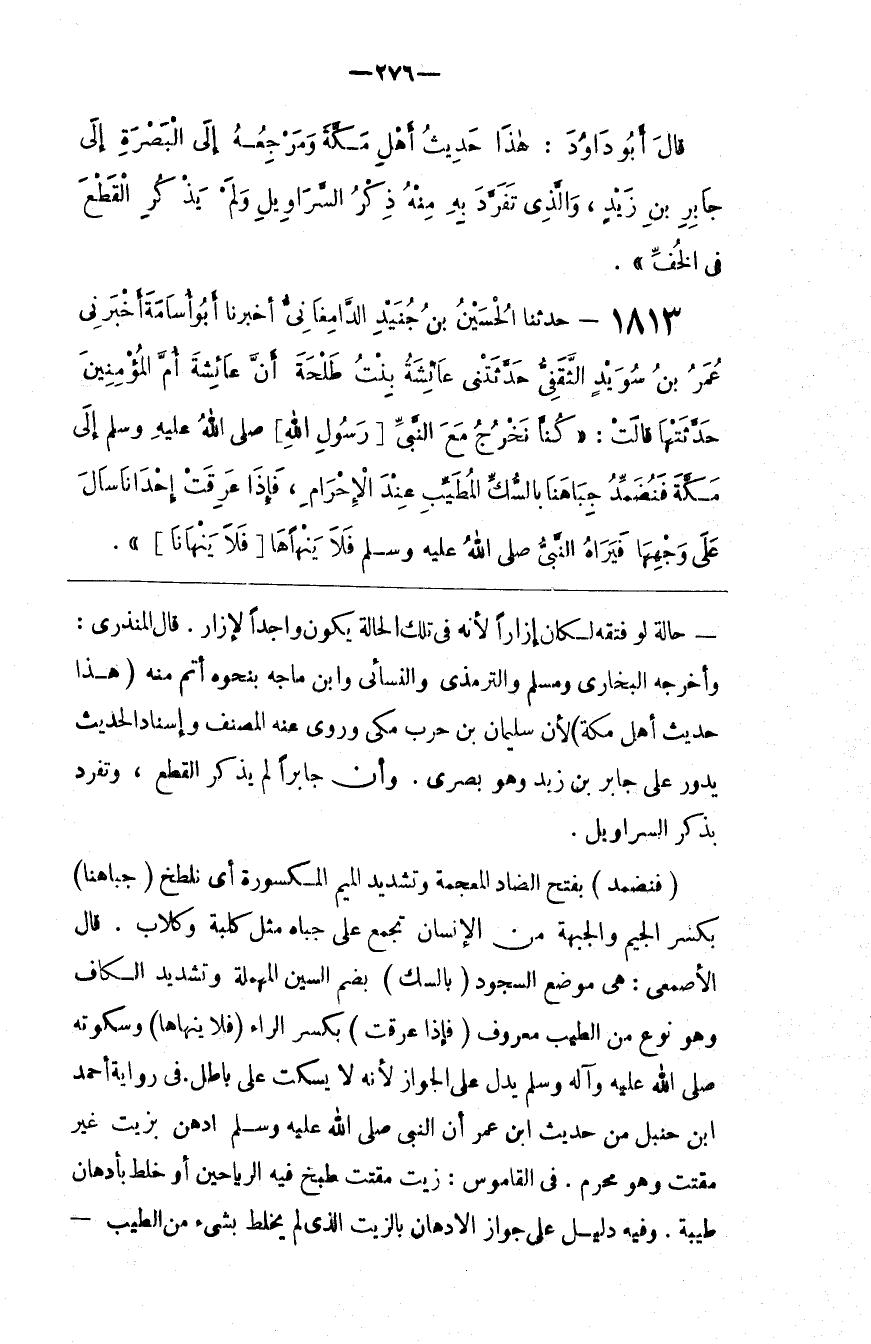 —٢٧٦—
قالَ أَبُو دَاوُدَ : هٰذَا حَدِيثُ أَهْلِ مَكَّةَ وَمَرْجِعُهُ إِلَى الْبَصْرَةِ إِلَى
جَابِرِ بنِ زَيْدٍ ، وَالَّذِى تَفَرَّدَ بِهِ مِنْهُ ذِكْرُ السَّرَاوِيلِ وَلَمْ يَذْكُرِ الْقَطْعَ
فى الخُفِّ » .
١٨١٣ — حدثنا الْحُسَيْنُ بنُ جُنَيْدِ الدَّامِغَانِىُّ أخبرنا أَبُو أُسَامَةَ أَخْبَرَنِى
عُمَرُ بنُ سُوَيْدٍ الثَّقَفِىُّ حَدَّثَتْنِى عَائِشَةُ بِنْتُ طَلْحَةَ أَنَّ عَائِشَةَ أُمَّ المُؤْمِنِينَ
حَدَّثَتْهَا قالَتْ : « كُنَّا نَخْرُجُ مَعَ النَّبِىِّ [ رَسُولِ اللهِ ] صلى اللهُ عليهِ وسلم إِلَى
مَكَّةَ فَنُضَمِّدُ جِبَاهَنَا بالسُّكِّ المُطَيَّبِ عِنْدَ الْإِحْرَامِ ، فَإِذَا عَرِقَتْ إِحْدَانَا سَالَ
عَلَى وَجْهِهَا فَيَرَاهُ النَّبِىُّ صلى اللهُ عليه وسلم فَلَا يَنْهَاهَا [ فَلَا يَنْهَانَا ] » .
— حالة لو فتقه لكان إزاراً لأنه فى تلك الحالة يكون واجداً لإزار . قال المنذرى :
وأخرجه البخارى ومسلم والترمذى والنسائى وابن ماجه بنحوه أتم منه ( هذا
حديث أهل مكة ) لأن سليمان بن حرب مكى وروى عنه المصنف وإسناد الحديث
يدور على جابر بن زيد وهو بصرى . وأن جابراً لم يذكر القطع ، وتفرد
بذكر السراويل .
( فنضمد ) بفتح الضاد المعجمة وتشديد الميم المكسورة أى نلطخ ( جباهنا )
بكسر الجيم والجبهة من الإنسان تجمع على جباه مثل كلبة وكلاب . قال
الأصمعى : هى موضع السجود ( بالسك ) بضم السين المهملة وتشديد الكاف
وهو نوع من الطيب معروف ( فإذا عرقت ) بكسر الراء ( فلا ينهاها ) وسكوته
صلى الله عليه وآله وسلم يدل على الجواز لأنه لا يسكت على باطل . فى رواية أحمد
ابن حنبل من حديث ابن عمر أن النبى صلى الله عليه وسلم ادهن بزيت غير
مقتت وهو محرم . فى القاموس : زيت مقتت طبخ فيه الرياحين أو خلط بأدهان
طيبة . وفيه دليل على جواز الادهان بالزيت الذى لم يخلط بشىء من الطيب —